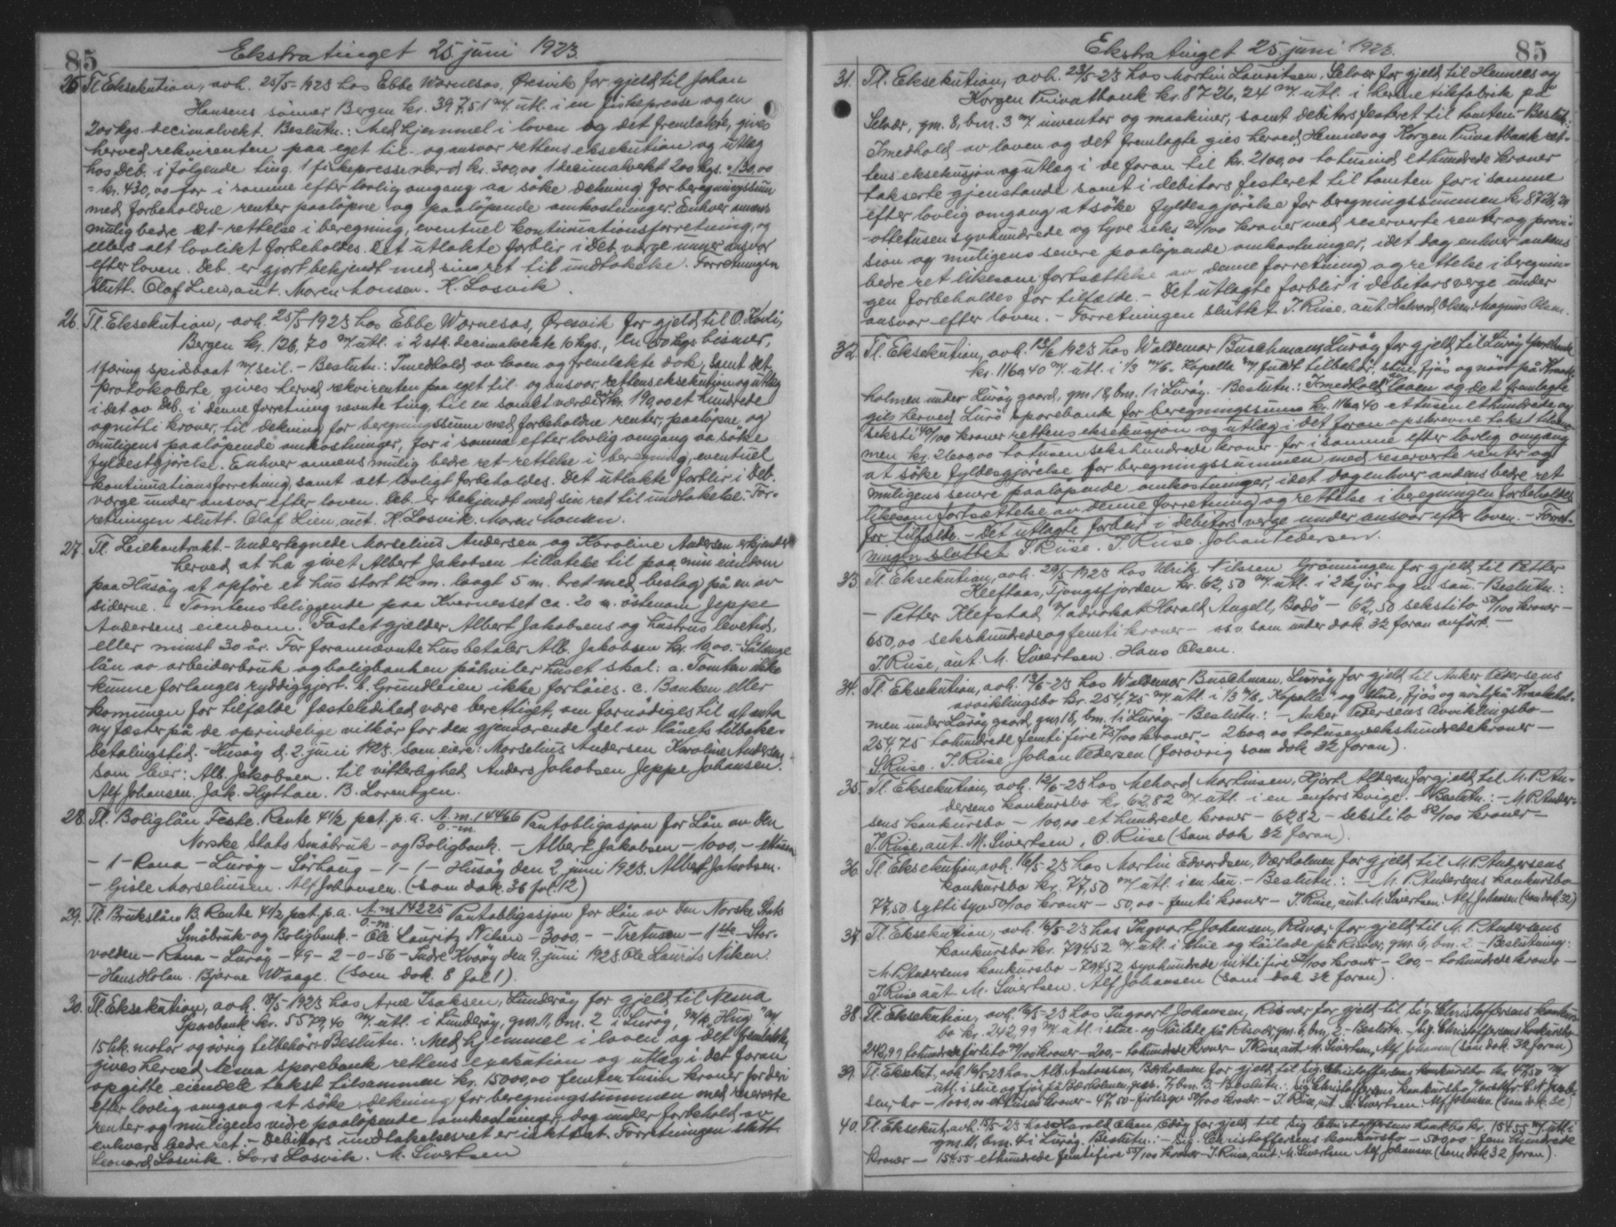 85 Ekstratinget 25 juni 1923.
25 Tl. Eksekution, avh. 25/5-1923 hos Ebbe Wornesos, Øresvik for gjeld til Johan
Hansens sönner Bergen kr. 397,51 m/ utl. i en fiskepresse og en
200 kgs. decimalvekt. Beslutn.: Med hjemmel i loven og det fremlagte, gives
herved rekvirenten paa eget til- og ansvar rettens eksekution og utlæg
hos Deb. i følgende ting. 1 fiskepresse værd kr. 300,00 1 decimalvekt 200 kgs. - 130,00
= kr. 430,00 for i samme efter lovlig omgang aa söke dekning for beregningssum
med forbeholdne renter paaløpne og paaløpende omkostninger. Enhver anens
mulig bedre ret-rettelse i beregning, eventuel kontinuationsforretning, og
ellers alt lovlikt forbeholdes. Det utlakte forblir i deb. værge under ansvor
efter loven. Deb. er gjort bekjendt med sin ret til undtakelse. Forretningen
slutt. Olaf Lien, aut. Maren Monsen. K. Losvik.
26. Tl. Eksekution, avh. 25/5 1923 hos Ebbe Wornesos, Øresvik for gjeld til O. Kavli,
Bergen kr. 126,70 m/ utl. i 2 stk. decimalvekte 10 kgs., en 50 kgs bismer,
1 föring spidsbaat m/ seil. - Beslutn.: Imedhold av loven og fremlakte dok. samt det
protokolerte gives herved rekvirenten paa eget til- og ansvar rettens eksekution og utlæg
i det av Deb. i denne forretning nevnte ting, til en samlet værdi kr. 190,00 et hundrede
ognitti kroner, til dekning for beregningssum med forbeholdne renter, paaløpne og
muligens paaløpende omkostninger, for i samme efter lovlig omgang aa söke
fyldestgjörelse. Enhver annens mulig bedre ret-rettelse i beregning, eventuel
kontinuationsforretning samt alt lovligt forbeholdes. Det utlakte forblir i deb.
værge under ansvar efter loven. Deb. er bekjendt med sin ret til undtakelse. For-
retningen slutt. Olaf Lien, aut. K. Losvik. Maren Monsen.
27. Tl. Leiekontrakt. - Undertegnede Marselius Andersen og Karoline Andersen erkjender
herved at ha givet Albert Jakobsen tillatelse til paa min eiendom
paa Husöy at opföre et hus stort 12 m. langt 5 m. bret med beslag på en av
siderne. - Tomtens beliggende paa Kvernesset ca. 20 m. östenom Jeppe
Andersens eiendom. Fastet gjælder Albert Jakobsens og hustrus levetid,
eller minst 30 år. For forannævnte hus betaler Alb. Jakobsen kr. 10,00. - Sålænge
lån av arbeiderbruk og boligbanken påhviler huset skal: a. Tomten ikke
kunne forlanges ryddiggjort. b. Grundleien ikke forhöies. c. Banken eller
kommunen for tilfælde fæsteledighed være berettiget, om fornödiges til at anta
ny fæster på de oprindelige vilkår for den gjenværende del av lånets tilbake-
betalingstid. - Husöy d. 2. juni 1923. som eiere: Marselius Andersen Karoline Andersen
som leier: Alb. Jakobsen. til vitterlighed Anders Jakobsen Jeppe Johansen.
Alf Johansen. Jak. Hyttan. B. Lorentzen.
28. Tl. Boliglån Feste. Rente 4½ pct. p.a. A.m. 14466 Pantobligasjon for Lån av Den
Norske Stats Småbruk - og Boligbank. - Albert Jakobsen - 1000, - ettusen
- 1 - Rana - Luröy - Sörhaug - 1 - 1 - Husöy den 2 juni 1923. Albert Jakobsen.
- Gisle Marselinsen. Alf Johansen. (som dok. 36 fol. 12)
29. Tl. Brukslån B. Rente 4½ pct. p.a. A.m. 14225 Pantobligasjon for Lån av Den Norske Stats
Småbruk - og Boligbank. - Ole Lauritz Nilsen - 3000, - - Tretusen - 1ste - Stor-
volden - Rana - Luröy - 49 - 2 - 0 - 56 - Indre Kvaröy den 9. juni 1923 Ole Laurits Nilsen.
- Hans Holan. Bjarne Waage. (som dok. 8 fol 1).
30. Tl. Eksekution, avh. 8/5-1923 hos Arne Isaksen, Lunderöy for gjeld til Nesna
Sparebank kr. 5579,40 m/ utl. i Lunderöy, gm. 11, bm. 2 i Luröy, m/k. "Haug" m/
15 hk. motor og övrig tilbehör. Beslutn.: Med hjemmel i loven og det fremlakte,
gives herved Nesna sparebank rettens exekution og utlæg i det foran
opgitte eiendele takst tilsammen kr. 15000,00 femten tusin kroner for deri
efter lovlig omgang at söke dekning for beregningssummen med reserverte
renter og muligens vidre paaløpende omkostninger, dog under forbehold av
enhvers bedre ret. - Debitors undtakelsesret er iakttat. Forretningen slutt.
Leonard Losvik. Lars Losvik. M. Sivertsen
Ekstratinget 25 juni 1923. 85
31. Tl. Eksekution, avh. 23/5-23 hos Martin Lauritsen, Selvær for gjeld til Hennes og
Korgen Privatbank kr. 8726,24 m/ utl. i hermetikfabrik på
Selvær, gm. 8, bm. 3 m/ inventar og maskiner, samt debitors festeret til tomten. - Beslut.:
Imedhold av loven og det fremlagte gies herved Hennes og Korgen Privatbank ret-
tens eksekusjon og utlæg i de foran til kr. 2100,00 totusind ethundrede kroner
takserte gjenstande samt i debitors festeret til tomten for i samme
efter lovlig omgang at söke fyldesgjörelse for beregningssummen kr. 8726,24
- ottetusensyvhundrede og tyve seks 24/100 kroner med reserverte renter og provi-
sion og muligens senere paaløpende omkostninger, idet dog enhver andens
bedre ret likesom fortsættelse av denne forretning og rettelse i beregnin-
gen forbeholdes for tilfælde. - Det utlagte forblir i debitors verge under
ansvar efter loven. - Forretningen sluttet. I. Riise, aut. Halvard Olsen. Magnus Olsen.
32. Tl. Eksekution, avh. 13/6 1923 hos Waldemar Buschmann, Luröy for gjeld til Luröy Sparebank
kr. 1160,40 m/ utl. i 1/3 m/k. Kapella m/ fuldt tilbehör. stue, fjös og növst på Kraake-
holmen under Luröy gaard, gm. 18, bm. 1 i Luröy. - Beslutn.: Imedhold av loven og det fremlagte
gis herved Lurö sparebank for beregningssum kr. 1160,40 ettusenethundrede og
seksti 40/100 kroner rettens eksekusjon og utlæg i det foran opskrevne takst tilsam-
men kr. 2600,00 totusensekshundrede kroner for i samme efter lovlig omgang
at söke fyldesgjörelse for beregningssummen med reserverte renter og
muligens senere paaløpende omkostninger, idet dog enhver andens bedre ret
likesom fortsættelse av denne forretning og rettelse i beregningen forbeholdes
for tilfælde. - Det utlagte forblir i debitors verge under ansvar efter loven. - Forret-
ningen sluttet. S. Riise. I. Riise. Johan Pedersen.
33 Tl. Eksekution, avh. 29/5-1923 hos Ulrik Nilsen Grønningen for gjeld til Petter
Kleftaas, Tjongsfjorden kr. 62,50 m/ utl. i 2 kjör og en sau. - Beslutn.:
- Petter Klefstad v/ advokat Harald Angell, Bodö - 62,50 sekstito 50/100 kroner -
650,00 sekshundredeogfemti kroner - osv som under dok. 32 foran anfört. -
I. Riise, aut. M. Sivertsen. Hans Olsen.
34. Tl. Eksekution, avh. 13/6-23 hos Waldemar Buschman, Luröy for gjeld til Anker Pedersens
avviklingsbo kr. 254,75 m/ utl. i 1/3 m/k. "Kapella" og stue, fjös og növst på Kraakehol-
men under Luröy gaard, gm 18, bm. 1 i Luröy. - Beslutn.: - Anker Pedersens Avviklingsbo -
254,75 tohundrede femti fire 75/100 kroner - 2600,00 totusensekshundredekroner -
S. Riise. I. Riise. Johan Pedersen (forövrig som dok 32 foran).
35. Tl. Eksekution, avh. 12/6-23 hos Mehard Martinsen, Hjart, Alderen for gjeld til M. P. An-
dersens konkursbo kr. 62,82 m/ utl. i en enfors kvige. - Beslutn.: - M. P. Ander-
sens konkursbo - 100,00 et hundrede kroner - 62,82 - sekstito 82/100 kroner -
I. Riise, aut. M. Sivertsen, O. Riise (som dok 32 foran).
36. Tl. Eksekution, avh. 16/5-23 hos Martin Edvardsen, Værholmen for gjeld til M. P. Andersens
konkursbo kr. 77,50 m/ utl. i en sau. - Beslutn.: - M. P. Andersens konkursbo
77,50 syttisyv 50/100 kroner - 50,00 - femti kroner - I. Riise, aut. M. Sivertsen. Alf Johansen (som dok. 32)
37 Tl. Eksekution, avh. 16/5-23 hos Ingvart Johansen, Risvær for gjeld til M. P. Andersens
konkursbo kr. 794,52 m/ utl. i stue og höilade på Risvær, gm. 6, bm. 2 - Beslutning:
- M. P. Andersens konkursbo - 794,52 syvhundrede nittifire 52/100 kroner - 200, - tohundrede kroner -
I. Riise aut. M. Sivertsen. Alf Johansen (som dok 32 foran).
38 Tl. Eksekution, avh. 16/5-23 hos Ingvart Johansen, Risvær for gjeld til Sig. Christoffersens konkurs-
bo kr. 242,99 m/ utl. i stue og höilade på Risvær gm. 6, bm. 2. - Beslutn. - Sig. Christoffersens konkursbo -
242,99 tohundredeförtito 99/100 kroner - 200, - tohundrede kroner - I. Riise, aut. M. Sivertsen, Alf Johansen (som dok. 32 foran)
39. Tl. Eksekut. avh. 16/5-23 hos Alb. Antonsen, Værholmen for gjeld til Sig. Christoffersens konkursbo kr. 47,50 m/
utl. i stue og fjös på Værholmen, gm. 7, bm. 3. Beslutn.: Sig. Christoffersens konkursbo
kr. - 1000,00 ettusen kroner - 47,50 - förtisyv 50/100 kroner - I. Riise, aut. M. Sivertsen Alf Johansen (som dok. 32)
40. Tl. Eksekut. avh. 16/5-23 hos Harald Olsen for gjeld til Sig. Christoffersens konkbo kr. 154,55 m/ utl. i
gm. 11, bm. 4 i Luröy. Beslutn.: - Sig. Christoffersens konkursbo - 500,00 - fem hundrede
kroner - 154,55 ethundrede femtifire 55/100 kroner I. Riise, aut. M. Sivertsen Alf Johansen (som dok 32 foran).